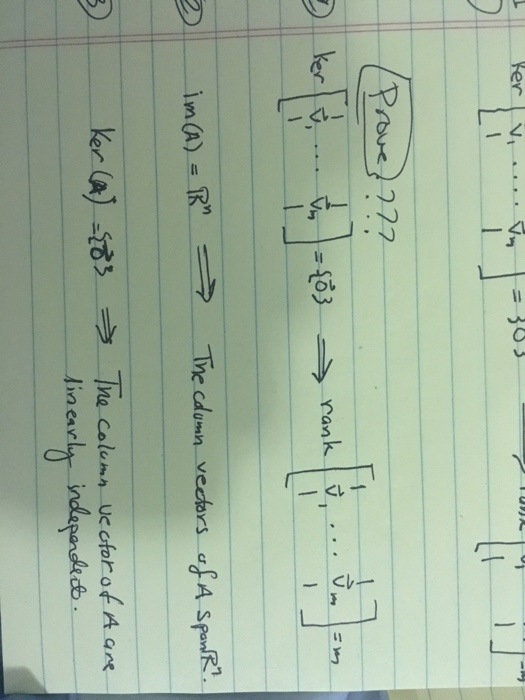 ker [ v⃗₁ ..... v⃗ₘ ] = {0}
Prove ???
① ker [ v⃗₁ ... v⃗ₘ ] = {0⃗} ⟹ rank [ v⃗₁ ... v⃗ₘ ] = m
② im(A) = ℝⁿ ⟹ The column vectors of A span ℝⁿ.
③ ker(A) = {0⃗} ⟹ The column vector of A are
linearly independent.